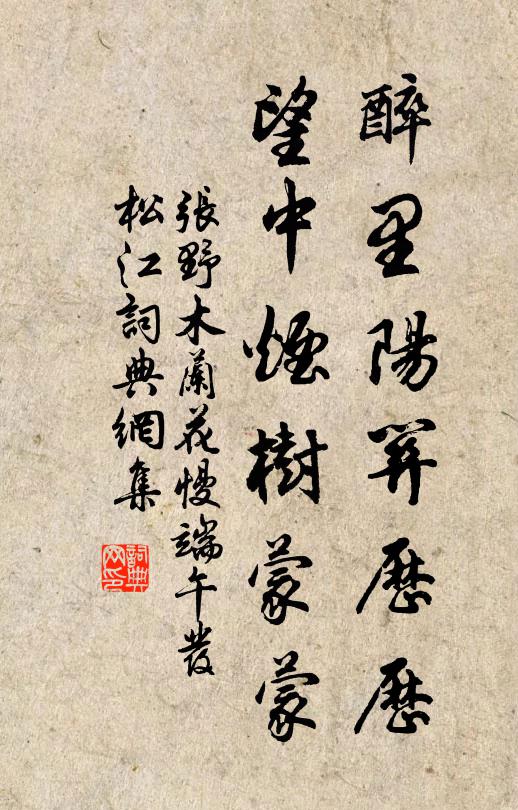 醉里陽関歷歷
望中煙樹蒙蒙
張野木蘭花慢端午發
松江詞典網集
詞典
网印